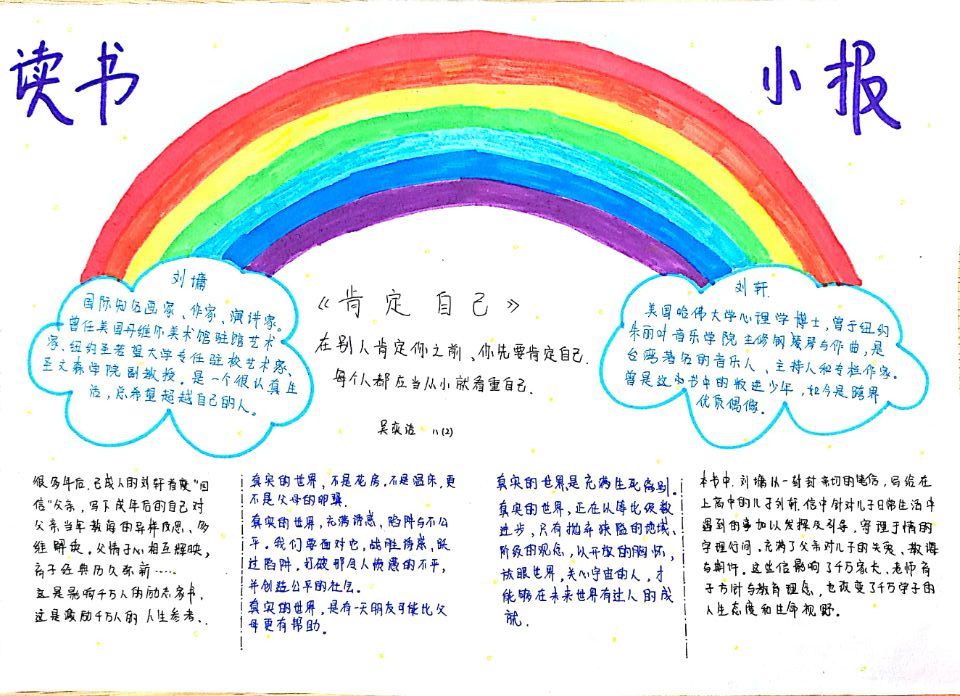 读书
小报
刘墉
国际知名画家、作家、演讲家。
曾任美国丹维尔美术馆驻馆艺术
家、纽约圣若望大学专任驻校艺术家、
圣文森学院副教授。是一个很认真生
活,总希望超越自己的人。
《肯定自己》
在别人肯定你之前、你先要肯定自己.
每个人都应当从小就看重自己.
(2)
刘轩
美国哈佛大学心理学博士,曾于纽约
朱丽叶音乐学院主修钢琴与作曲,是
台湾著名的音乐人、主持人和专栏作家。
曾是这本书中的叛逆少年,如今是跨界
优质偶像。
很多年后,已成人的刘轩有感"回
信"父亲,写下成年后的自己对
父亲当年教诲的异样反思、多
维解读。父情子心相互辉映,
亲子经典历久弥新……
这是影响千万人的励志名书,
这是激励千万人的人生参考.
真实的世界,不是花房,不是温床,更
不是父母的卵翼.
真实的世界,充满诱惑,陷阱与不公
平。我们要面对它,战胜诱惑,跃
过陷阱,打破那令人愤懑的不平,
并创造公平的社会。
真实的世界,是有一天朋友可能比父
母更有帮助。
真实的世界是充满生死离别。
真实的世界,正在以等比级数
进步,只有抛弃狭隘的地域、
阶级的观念,以开放的胸怀,
放眼世界,关心宇宙的人,才
能够在未来世界有过人的成
就.
本书中,刘墉以一封封亲切的笔信,写给在
上高中的儿子刘轩.信中针对儿子日常生活中
遇到的事加以发挥及引导,寓理于情的
字理行间,充满了父亲对儿子的关爱、教诲
与期许。这些信影响了千万家长、老师育
子方针与教育理念,也改变了千万学子的
人生态度和生命视野。